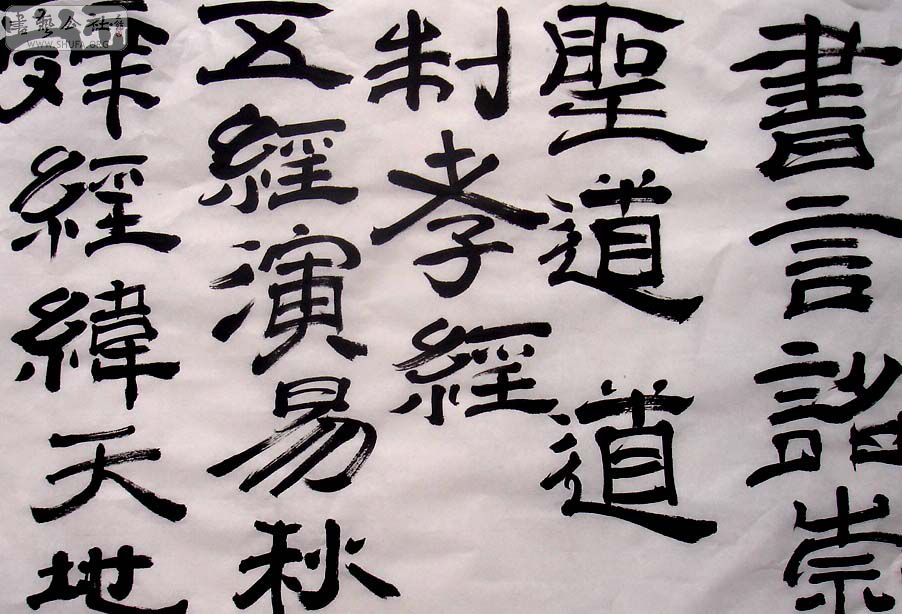 書言詔崇
聖道道
制孝經
五經演易秋
辤經緯天地
書藝公社
WWW.SHUFA.ORG